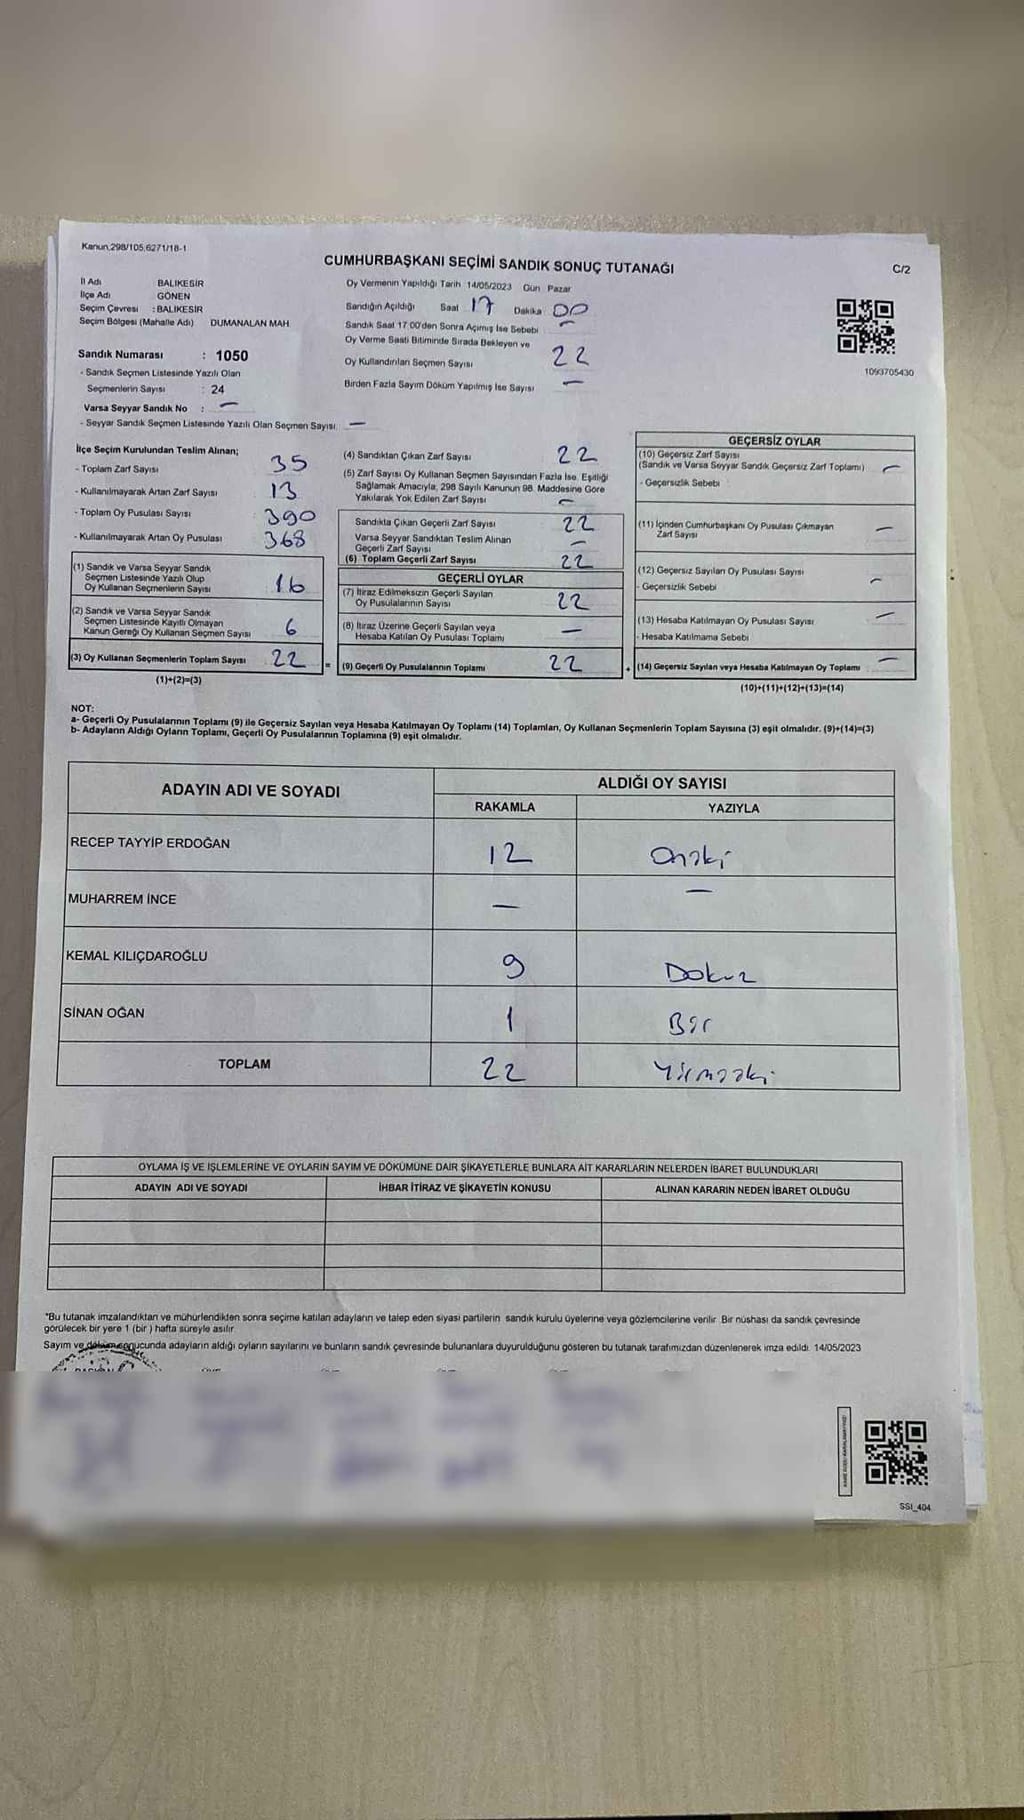 Kanun,298/105,6271/18-1
CUMHURBAŞKANI SEÇİMİ SANDIK SONUÇ TUTANAĞI
C/2
İl Adı BALIKESİR
İlçe Adı GÖNEN
Seçim Çevresi : BALIKESİR
Seçim Bölgesi (Mahalle Adı) DUMANALAN MAH
Oy Vermenin Yapıldığı Tarih 14/05/2023 Gün Pazar
Sandığın Açıldığı Saat 17 Dakika 00
Sandık Saat 17:00'den Sonra Açımış İse Sebebi –
Oy Verme Saati Bitiminde Sırada Bekleyen ve
Oy Kullandırılan Seçmen Sayısı 22
Birden Fazla Sayım Döküm Yapılmış İse Sayısı –
1093705430
Sandık Numarası : 1050
- Sandık Seçmen Listesinde Yazılı Olan
Seçmenlerin Sayısı : 24
Varsa Seyyar Sandık No : –
- Seyyar Sandık Seçmen Listesinde Yazılı Olan Seçmen Sayısı: –
İlçe Seçim Kurulundan Teslim Alınan;
- Toplam Zarf Sayısı 35
- Kullanılmayarak Artan Zarf Sayısı 13
- Toplam Oy Pusulası Sayısı 390
- Kullanılmayarak Artan Oy Pusulası 368
(1) Sandık ve Varsa Seyyar Sandık
Seçmen Listesinde Yazılı Olup
Oy Kullanan Seçmenlerin Sayısı 16
(2) Sandık ve Varsa Seyyar Sandık
Seçmen Listesinde Kayıtlı Olmayan
Kanun Gereği Oy Kullanan Seçmen Sayısı 6
(3) Oy Kullanan Seçmenlerin Toplam Sayısı 22 =
(1)+(2)=(3)
(4) Sandıktan Çıkan Zarf Sayısı 22
(5) Zarf Sayısı Oy Kullanan Seçmen Sayısından Fazla İse, Eşitliği
Sağlamak Amacıyla, 298 Sayılı Kanunun 98. Maddesine Göre
Yakılarak Yok Edilen Zarf Sayısı –
Sandıkta Çıkan Geçerli Zarf Sayısı 22
Varsa Seyyar Sandıktan Teslim Alınan
Geçerli Zarf Sayısı –
(6) Toplam Geçerli Zarf Sayısı 22
GEÇERLİ OYLAR
(7) İtiraz Edilmeksizin Geçerli Sayılan
Oy Pusulalarının Sayısı 22
(8) İtiraz Üzerine Geçerli Sayılan veya
Hesaba Katılan Oy Pusulası Toplamı –
(9) Geçerli Oy Pusulalarının Toplamı 22 +
GEÇERSİZ OYLAR
(10) Geçersiz Zarf Sayısı
(Sandık ve Varsa Seyyar Sandık Geçersiz Zarf Toplamı) –
- Geçersizlik Sebebi
(11) İçinden Cumhurbaşkanı Oy Pusulası Çıkmayan
Zarf Sayısı –
(12) Geçersiz Sayılan Oy Pusulası Sayısı –
- Geçersizlik Sebebi
(13) Hesaba Katılmayan Oy Pusulası Sayısı –
- Hesaba Katılmama Sebebi
(14) Geçersiz Sayılan veya Hesaba Katılmayan Oy Toplamı –
(10)+(11)+(12)+(13)=(14)
NOT:
a- Geçerli Oy Pusulalarının Toplamı (9) ile Geçersiz Sayılan veya Hesaba Katılmayan Oy Toplamı (14) Toplamları, Oy Kullanan Seçmenlerin Toplam Sayısına (3) eşit olmalıdır. (9)+(14)=(3)
b- Adayların Aldığı Oyların Toplamı, Geçerli Oy Pusulalarının Toplamına (9) eşit olmalıdır.
ADAYIN ADI VE SOYADI
ALDIĞI OY SAYISI
RAKAMLA YAZIYLA
RECEP TAYYİP ERDOĞAN 12 Oniki
MUHARREM İNCE – –
KEMAL KILIÇDAROĞLU 9 Dokuz
SİNAN OĞAN 1 Bir
TOPLAM 22 Yirmiiki
OYLAMA İŞ VE İŞLEMLERİNE VE OYLARIN SAYIM VE DÖKÜMÜNE DAİR ŞİKAYETLERLE BUNLARA AİT KARARLARIN NELERDEN İBARET BULUNDUKLARI
ADAYIN ADI VE SOYADI İHBAR İTİRAZ VE ŞİKAYETİN KONUSU ALINAN KARARIN NEDEN İBARET OLDUĞU
*Bu tutanak imzalandıktan ve mühürlendikten sonra seçime katılan adayların ve talep eden siyasi partilerin sandık kurulu üyelerine veya gözlemcilerine verilir. Bir nüshası da sandık çevresinde
görülecek bir yere 1 (bir) hafta süreyle asılır.
Sayım ve döküm sonucunda adayların aldığı oyların sayılarını ve bunların sandık çevresinde bulunanlara duyurulduğunu gösteren bu tutanak tarafımızdan düzenlenerek imza edildi. 14/05/2023
SSI_404